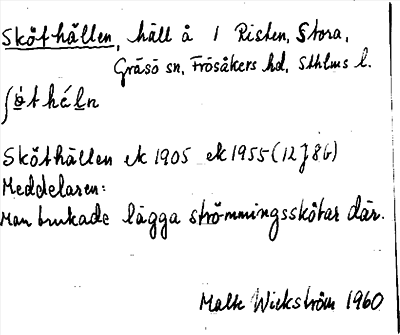 Sköthällen, häll å 1 Risten, Stora,
Gräsö sn, Frösåkers hd, Sthlms l.
ʃø̀t héḷn
Sköthällen ek 1905 ek 1955 (12J8G)
Meddelaren:
Man brukade lägga strömmingsskötar där.
Malte Wickström 1960